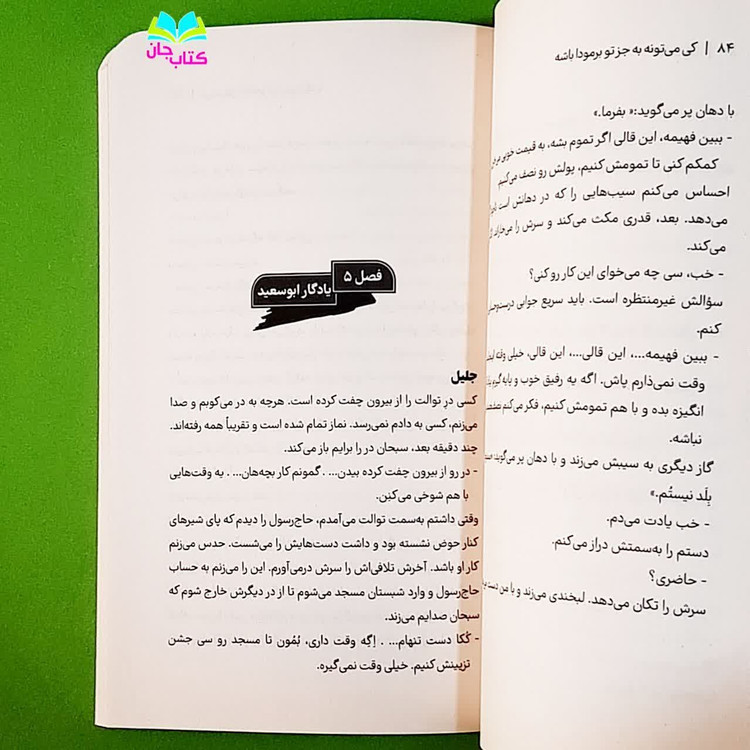 کتاب جان
۸۴ | کی می‌تونه به جز تو برمودا باشه
با دهان پر می‌گوید:« بفرما.»
- ببین فهیمه، این قالی اگر تموم بشه، به قیمت خوبی
کمکم کنی تا تمومش کنیم، پولش رو نصف می‌کنیم
احساس می‌کنم سیب‌هایی را که در دهانش است
می‌دهد. بعد، قدری مکث می‌کند و سرش را
می‌کند.
- خب، سی چه می‌خوای این کار رو کنی؟
سؤالش غیرمنتظره است. باید سریع جوابی
کنم.
- ببین فهیمه...، این قالی...، این قالی، خیلی وقته
وقت نمی‌ذارم پاش. اگه یه رفیق خوب و پایه
انگیزه بده و با هم تمومش کنیم، فکر می‌کنم
نباشه.
گاز دیگری به سیبش می‌زند و با دهان پر می‌گوید:
بِلَد نیستُم.»
- خب یادت می‌دم.
دستم را به‌سمتش دراز می‌کنم.
- حاضری؟
سرش را تکان می‌دهد. لبخندی می‌زند و با من دست
فصل ۵
یادگار ابوسعید
جلیل
کسی درِ توالت را از بیرون چفت کرده است. هرچه به در می‌کوبم و صدا
می‌زنم، کسی به دادم نمی‌رسد. نماز تمام شده است و تقریباً همه رفته‌اند.
چند دقیقه بعد، سبحان در را برایم باز می‌کند.
- در رو از بیرون چفت کرده بیدن... . گمونم کار بچه‌هان... . یه وقت‌هایی
با هم شوخی می‌کنِن.
وقتی داشتم به‌سمت توالت می‌آمدم، حاج‌رسول را دیدم که پای شیرهای
کنار حوض نشسته بود و داشت دست‌هایش را می‌شست. حدس می‌زنم
کار او باشد. آخرش تلافی‌اش را سرش درمی‌آورم. این را می‌زنم به حساب
حاج‌رسول و وارد شبستان مسجد می‌شوم تا از در دیگرش خارج شوم که
سبحان صدایم می‌زند.
- کُکا دست تنهام... . اِگِه وقت داری، بُمُون تا مسجد رو سی جشن
تزیینش کنیم. خیلی وقت نمی‌گیره.